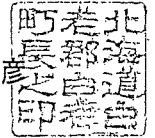 北海道白
老郡白老
町長之印
彦